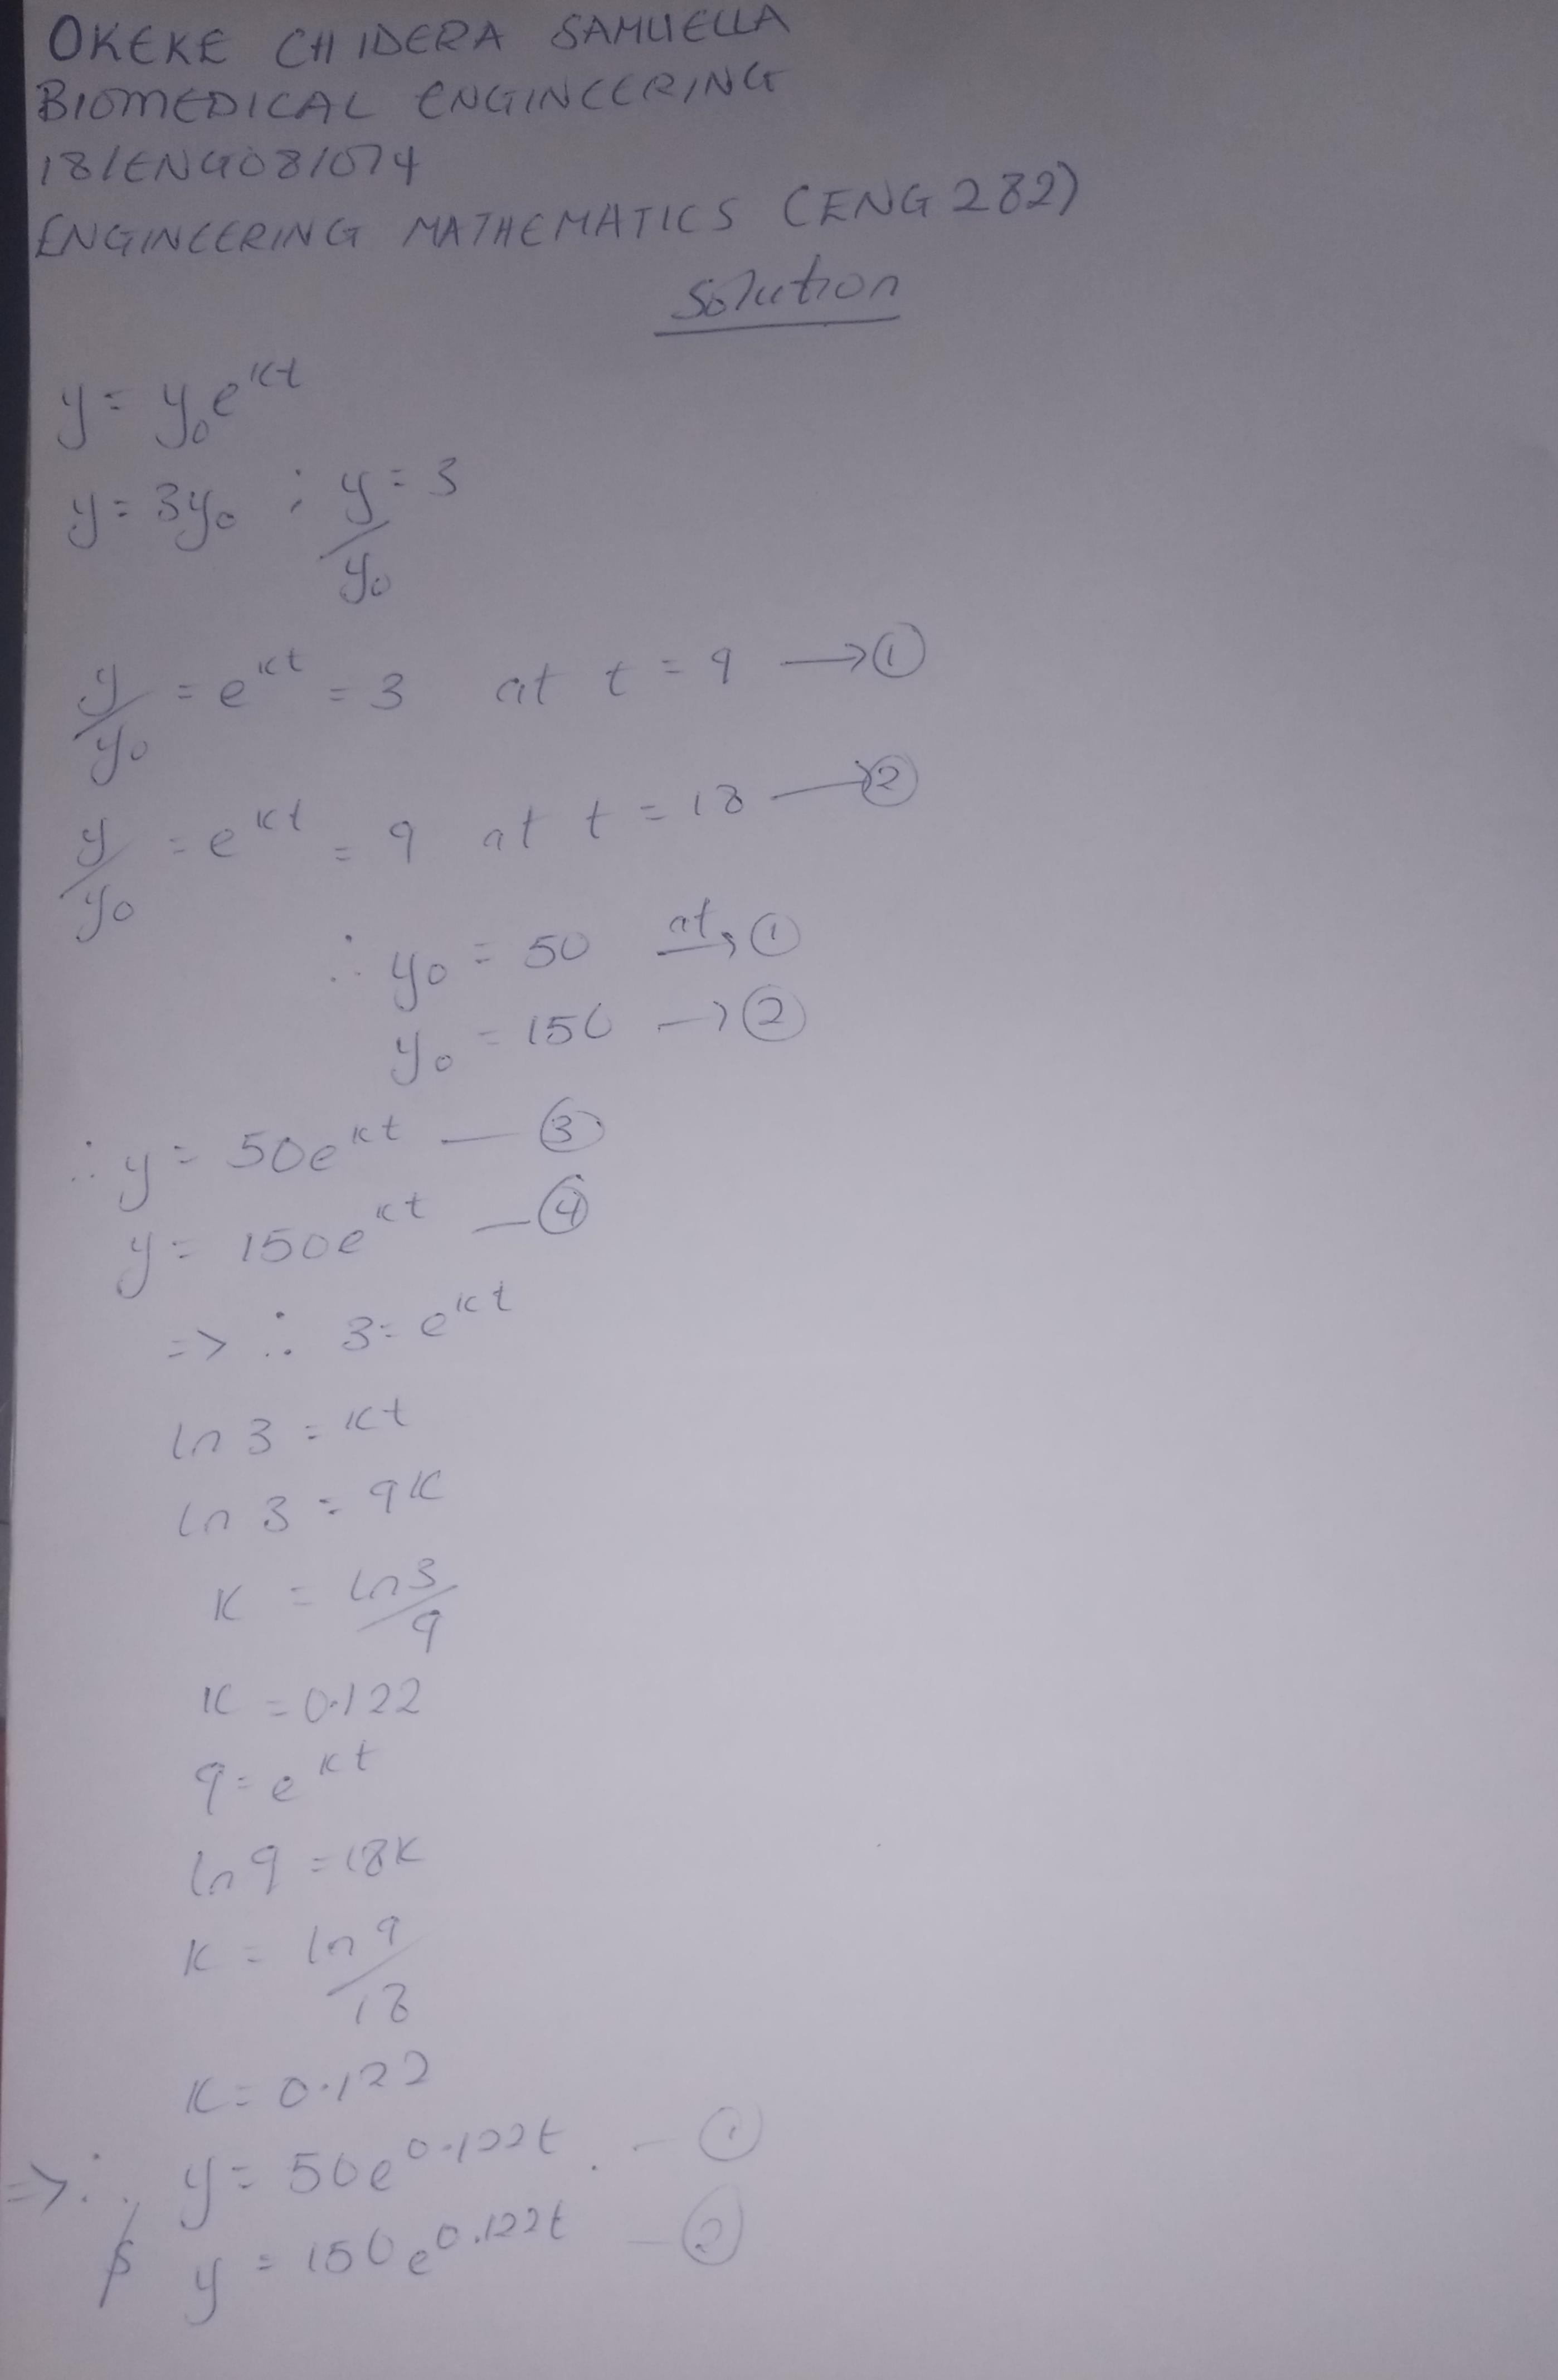 OKEKE CHIDERA SAMUELLA
BIOMEDICAL ENGINEERING
18/ENG08/074
ENGINEERING MATHEMATICS (ENG 282)
Solution
y = y₀e^kt
y = 3y₀ ; y/y₀ = 3
y/y₀ = e^kt = 3 at t = 9 → ①
y/y₀ = e^kt = 9 at t = 18 → ②
∴ y₀ = 50 at → ①
y₀ = 150 → ②
∴ y = 50e^kt — ③
y = 150e^kt — ④
=> ∴ 3 = e^kt
ln 3 = kt
ln 3 = 9k
k = ln3/9
k = 0.122
9 = e^kt
ln 9 = 18k
k = ln 9/18
k = 0.122
=> ∴ y = 50e^0.122t . — ①
y = 150e^0.122t — ②